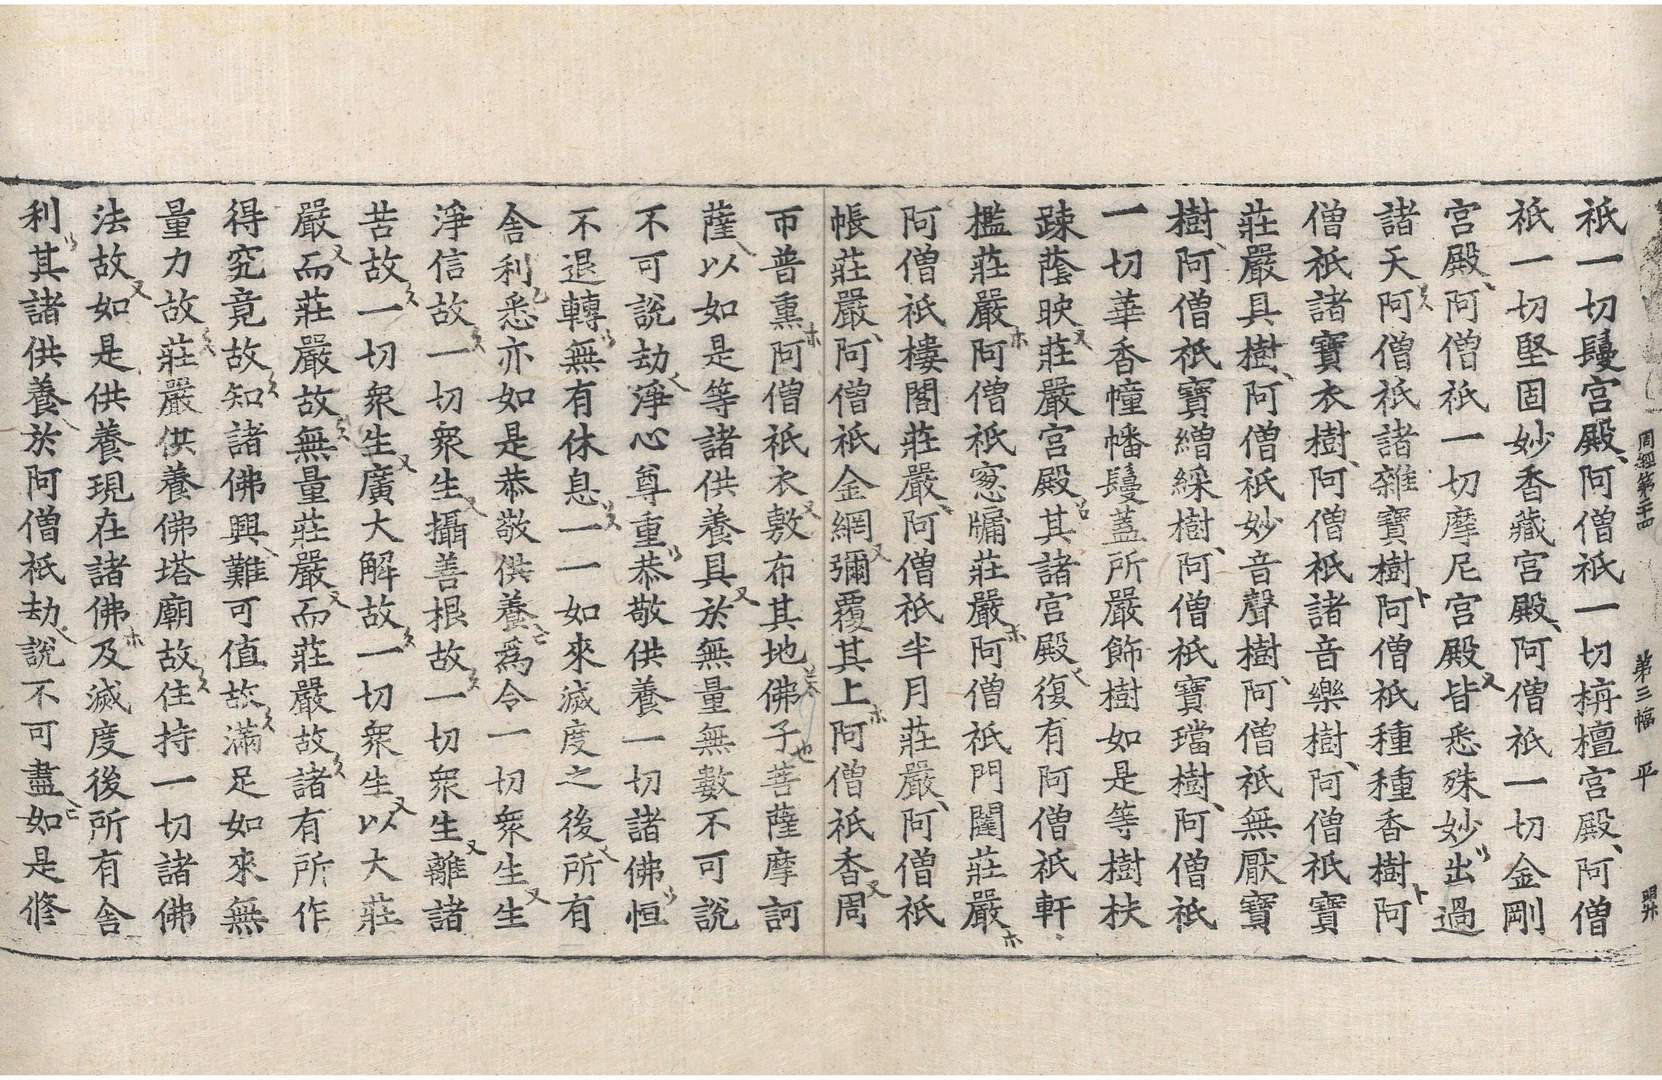 周經第二十四 第三幅 平
祇一切鬘宮殿阿僧祇一切栴檀宮殿阿僧
祇一切堅固妙香藏宮殿阿僧祇一切金剛
宮殿阿僧祇一切摩尼宮殿皆悉殊妙出過
諸天阿僧祇諸雜寶樹阿僧祇種種香樹阿
僧祇諸寶衣樹阿僧祇諸音樂樹阿僧祇寶
莊嚴具樹阿僧祇妙音聲樹阿僧祇無厭寶
樹阿僧祇寶繒綵樹阿僧祇寶璫樹阿僧祇
一切華香幢幡鬘蓋所嚴飾樹如是等樹扶
踈蔭映莊嚴宮殿其諸宮殿復有阿僧祇軒
檻莊嚴阿僧祇窓牖莊嚴阿僧祇門闥莊嚴
阿僧祇樓閣莊嚴阿僧祇半月莊嚴阿僧祇
帳莊嚴阿僧祇金網彌覆其上阿僧祇香周
帀普熏阿僧祇衣敷布其地佛子菩薩摩訶
薩以如是等諸供養具於無量無數不可說
不可說劫淨心尊重恭敬供養一切諸佛恒
不退轉無有休息一一如來滅度之後所有
舍利悉亦如是恭敬供養為令一切衆生生
淨信故一切衆生攝善根故一切衆生離諸
苦故一切衆生廣大解故一切衆生以大莊
嚴而莊嚴故無量莊嚴而莊嚴故諸有所作
得究竟故知諸佛興難可值故滿足如來無
量力故莊嚴供養佛塔廟故住持一切諸佛
法故如是供養現在諸佛及滅度後所有舍
利其諸供養於阿僧祇劫說不可盡如是修